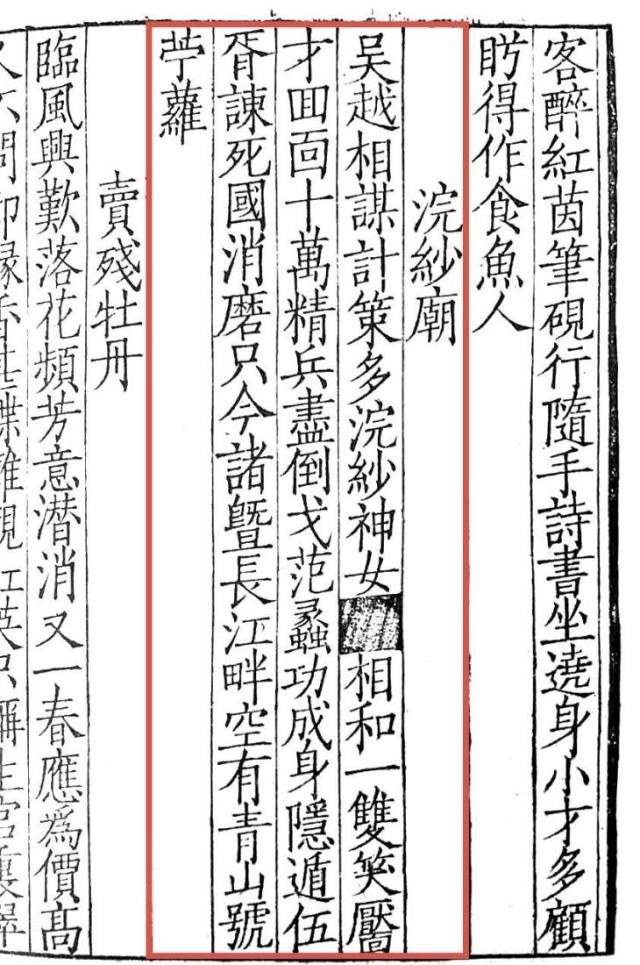 客醉紅茵筆硯行隨手詩書坐遶身小才多顧
盻得作食魚人
浣紗廟
吴越相謀計策多浣紗神女相和一雙笑靨
才囬靣十萬精兵盡倒戈范蠡功成身隱遁伍
胥諫死國消磨只今諸曁長江畔空有青山號
苧蘿
賣殘牡丹
臨風興歎落花頻芳意潛消又一春應爲價髙